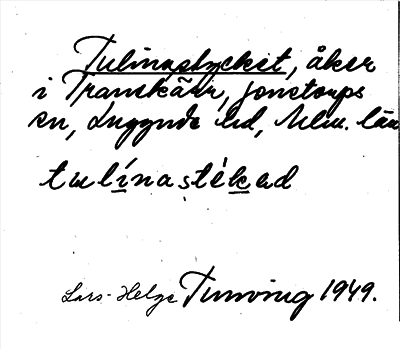 Tulinastycket, åker
i Tranekärr, Jonstorps
sn, Luggude hd, Mlm. län
tulínastékad
Lars-Helge Tunving 1949.